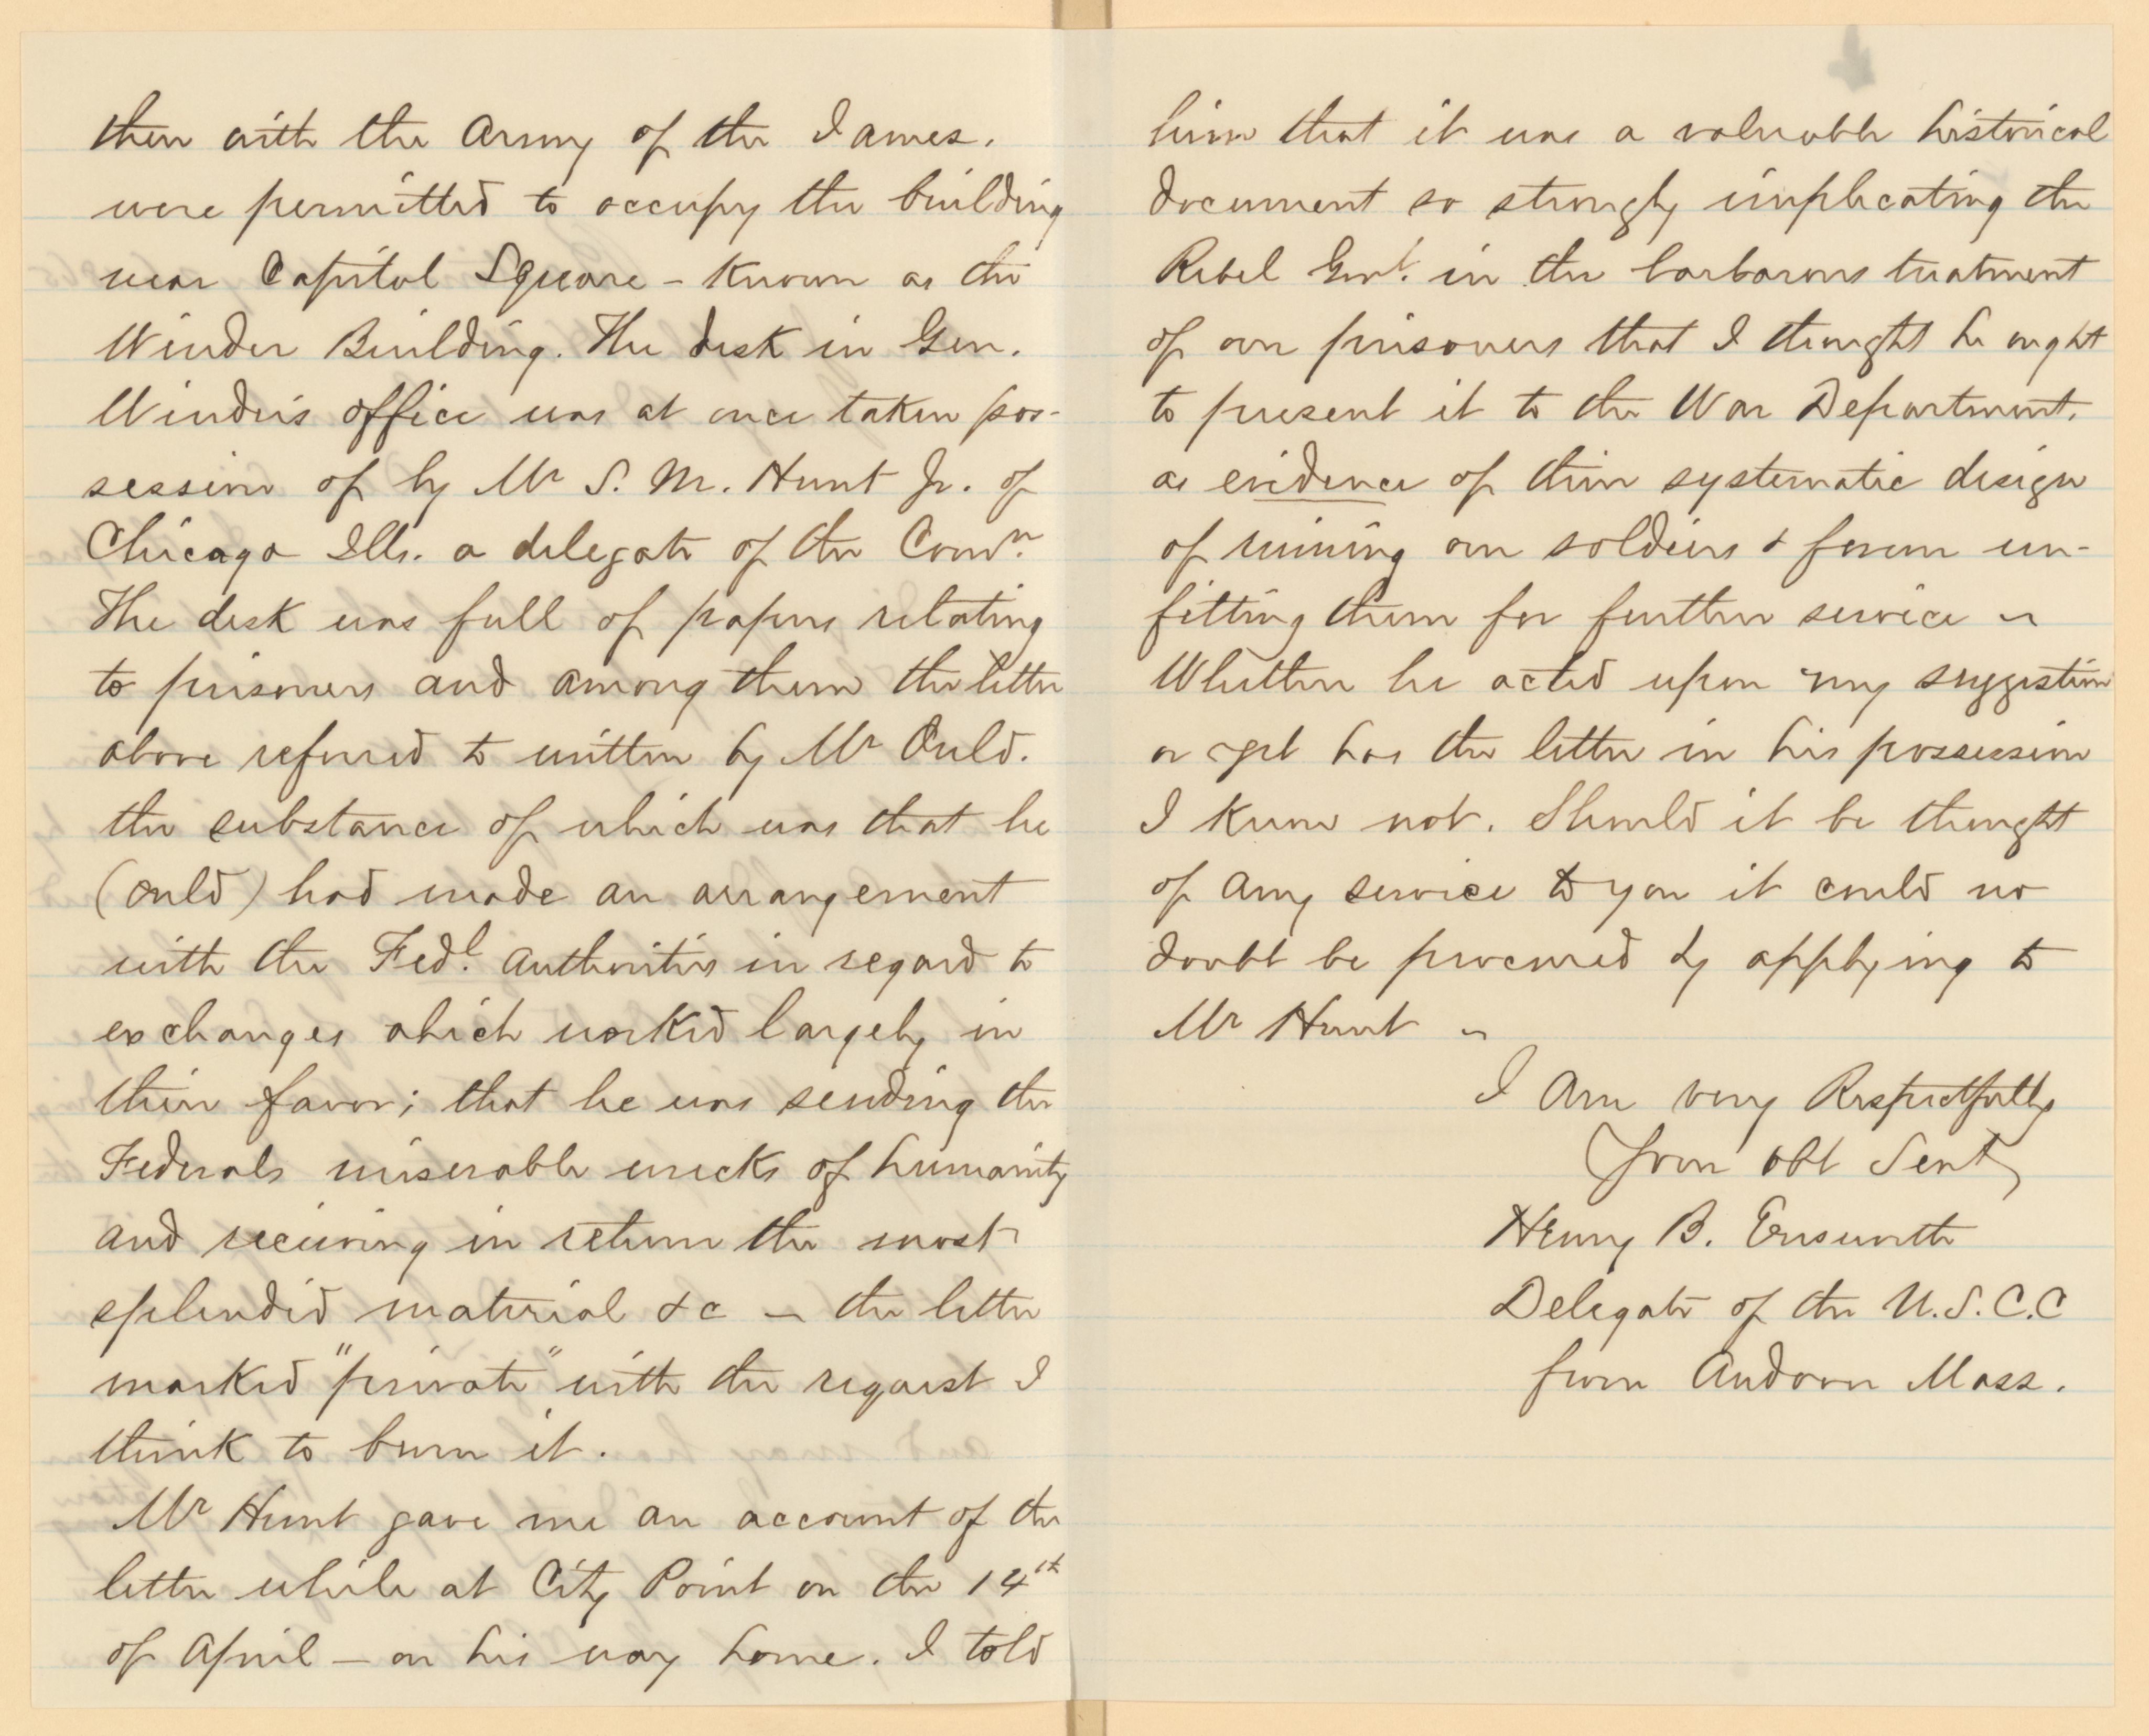 then with the Army of the James.
were permitted to occupy the building
near Capitol Square – known as the
Winder Building. The desk in Gen.
Winder's office was at once taken pos-
session of by Mr S. M. Hunt Jr. of
Chicago Ills. a delegate of the Comn.
The desk was full of papers relating
to prisoners and among them the letter
above referred to written by Mr Ould.
the substance of which was that he
(Ould) had made an arrangement
with the Fedl. Authorities in regard to
exchanges which worked largely in
their favor; that he was sending the
Federals miserable wrecks of humanity
and receiving in return the most
splendid material &c – the letter
marked "private" with the request I
think to burn it.
Mr Hunt gave me an account of the
letter while at City Point on the 14th
of April – on his way home. I told
him that it was a valuable historical
document so strongly implicating the
Rebel Govt. in the barbarous treatment
of our prisoners that I thought he ought
to present it to the War Department.
as evidence of their systematic design
of ruining our soldiers & forever un-
fitting them for further service –
Whether he acted upon my suggestion
or yet has the letter in his possession
I know not. Should it be thought
of any service to you it could no
doubt be procured by applying to
Mr Hunt –
I Am very Respectfully
Your obt Servt
Henry B. Ensworth
Delegate of the U.S.C.C
from Andover Mass.